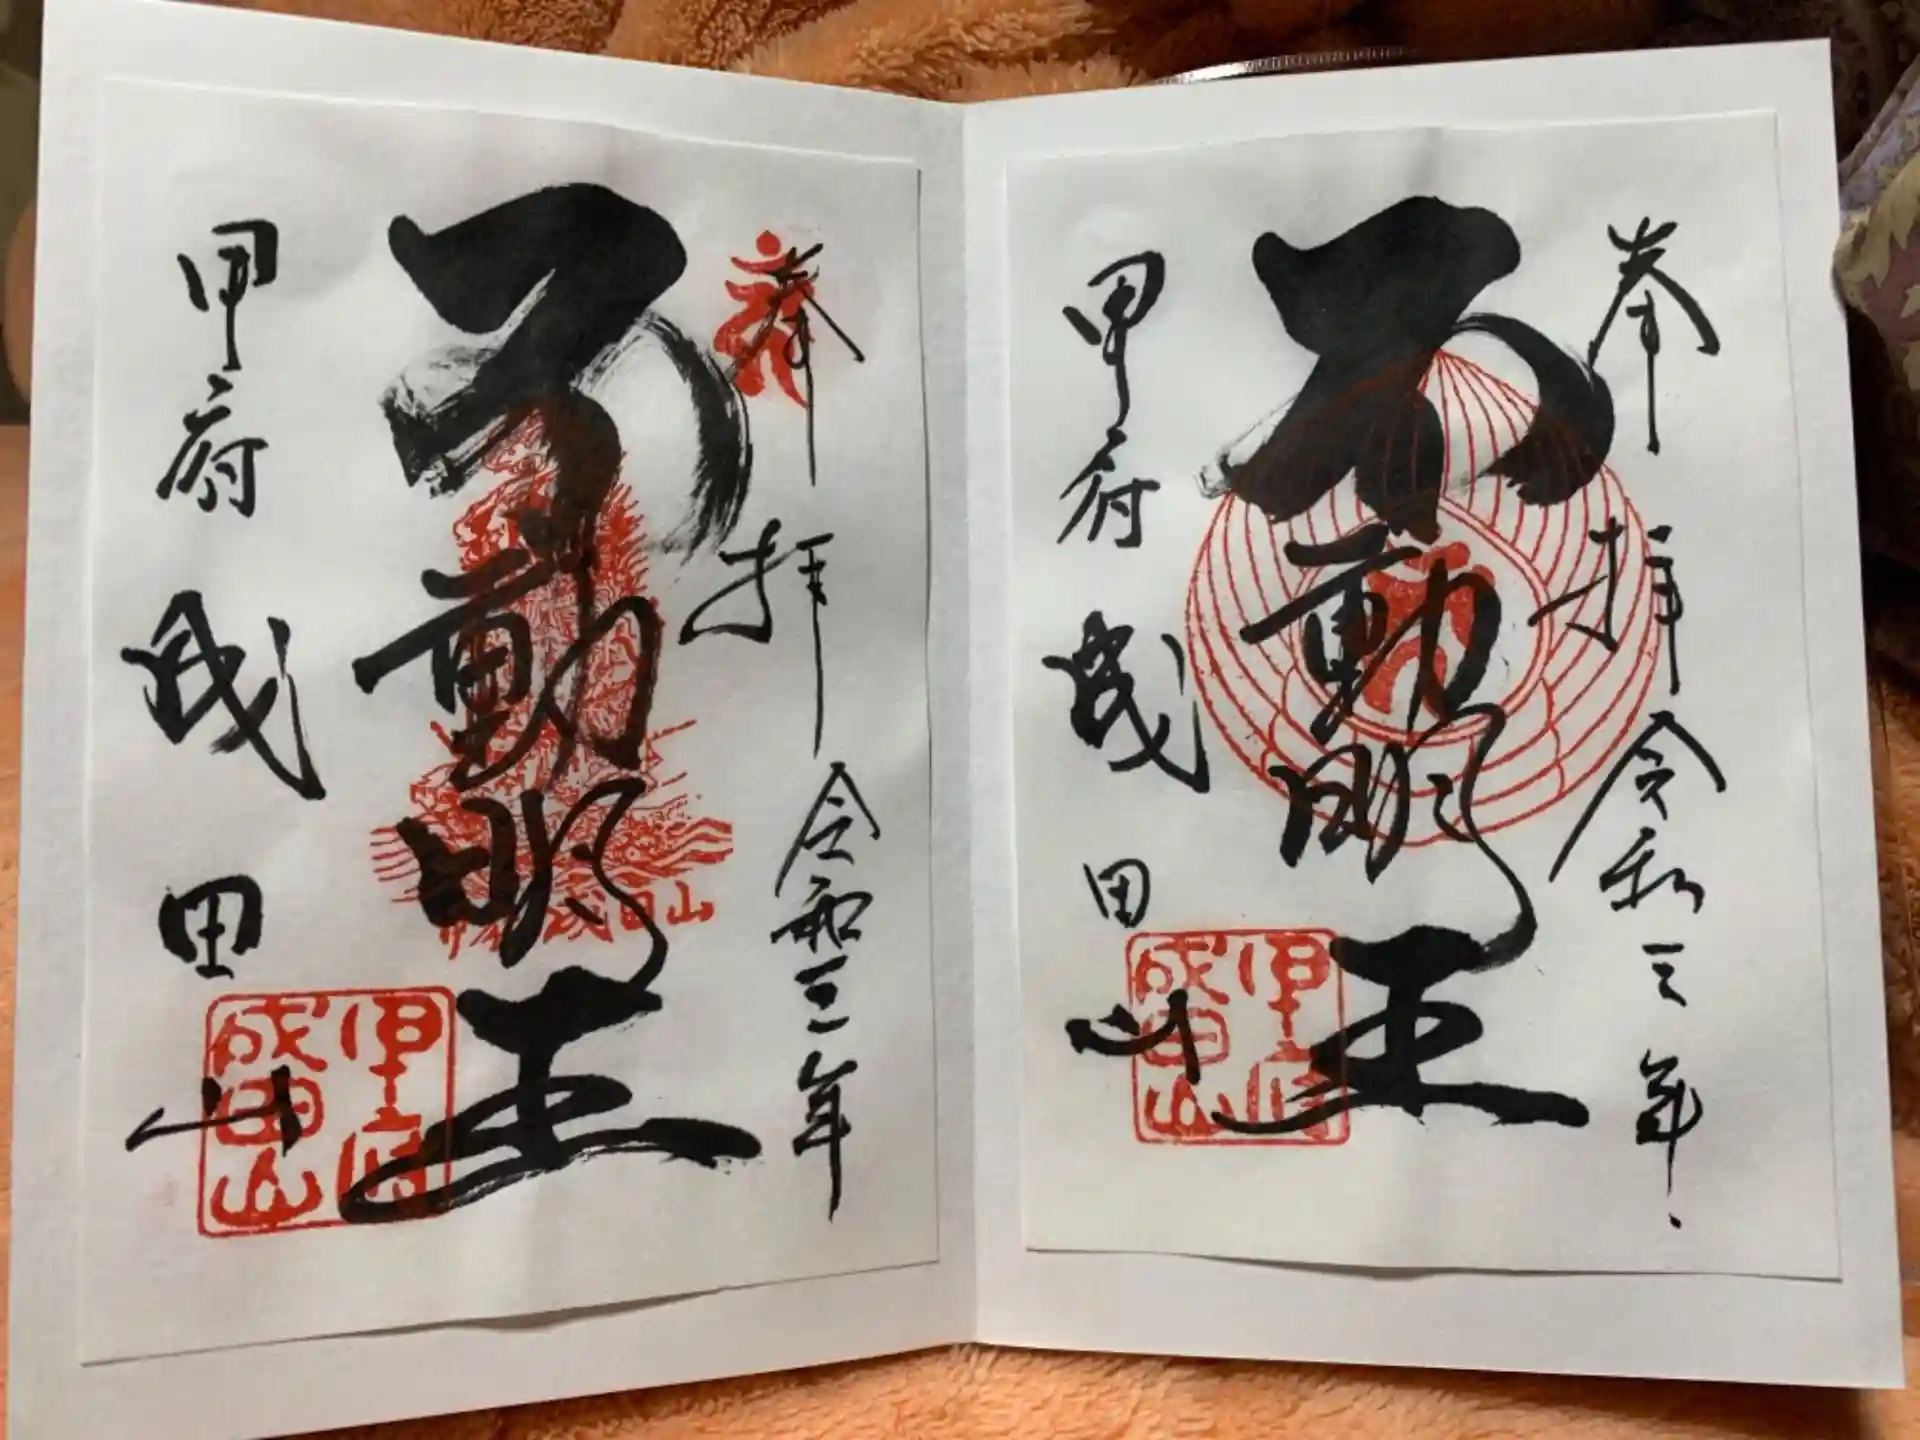 奉拝 令和三年
不動明王
甲府 成田山
甲府
成田山
奉拝 令和三年
不動明王
成田山
甲府 成田山
甲府
成田山